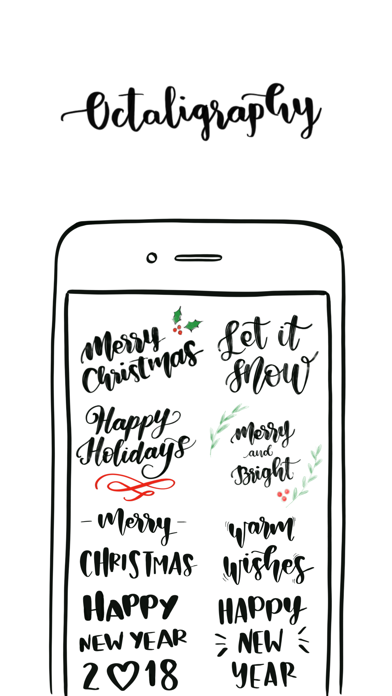 Octaligraphy
Merry
Christmas
Let it
Snow
Happy
Holidays
Merry
and
Bright
Merry
CHRISTMAS
warm
wishes
HAPPY
NEW YEAR
2018
HAPPY
NEW
YEAR